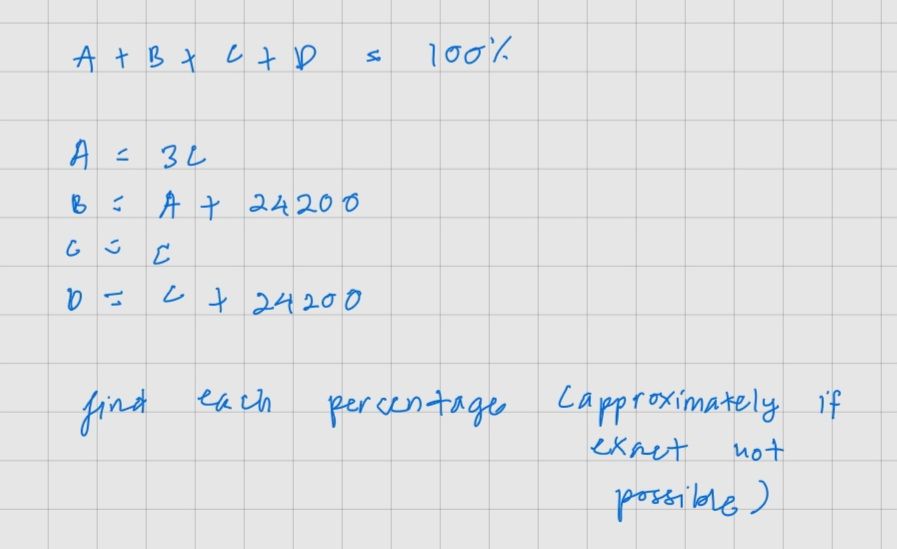 A + B + C + D = 100%
A = 3C
B = A + 24200
C = C
D = C + 24200
find each percentage (approximately if
exact not
possible)